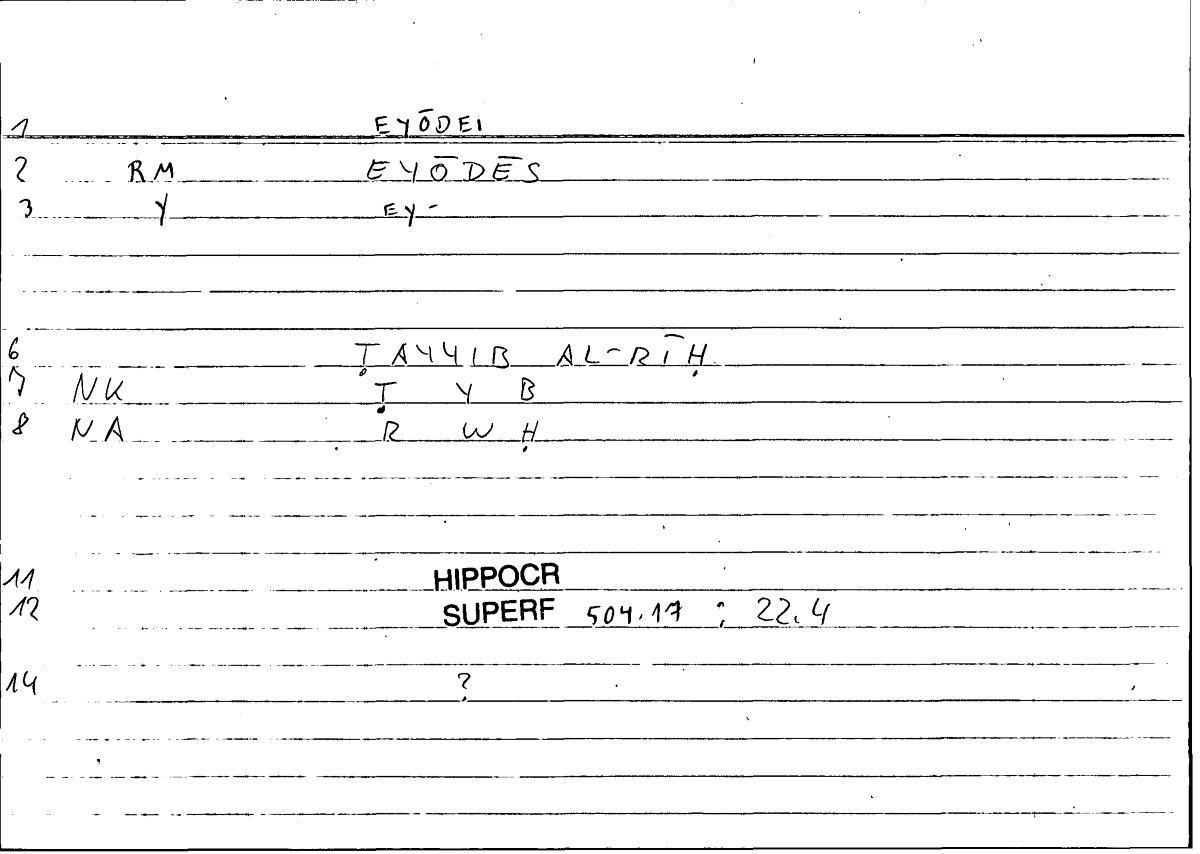 1 EYŌDEI
2 RM EYŌDĒS
3 Y EY-
6 ṬAYYIB AL-RĪḤ
7 NK Ṭ Y B
8 NA R W Ḥ
11 HIPPOCR
12 SUPERF 504.17 : 22.4
14 ?